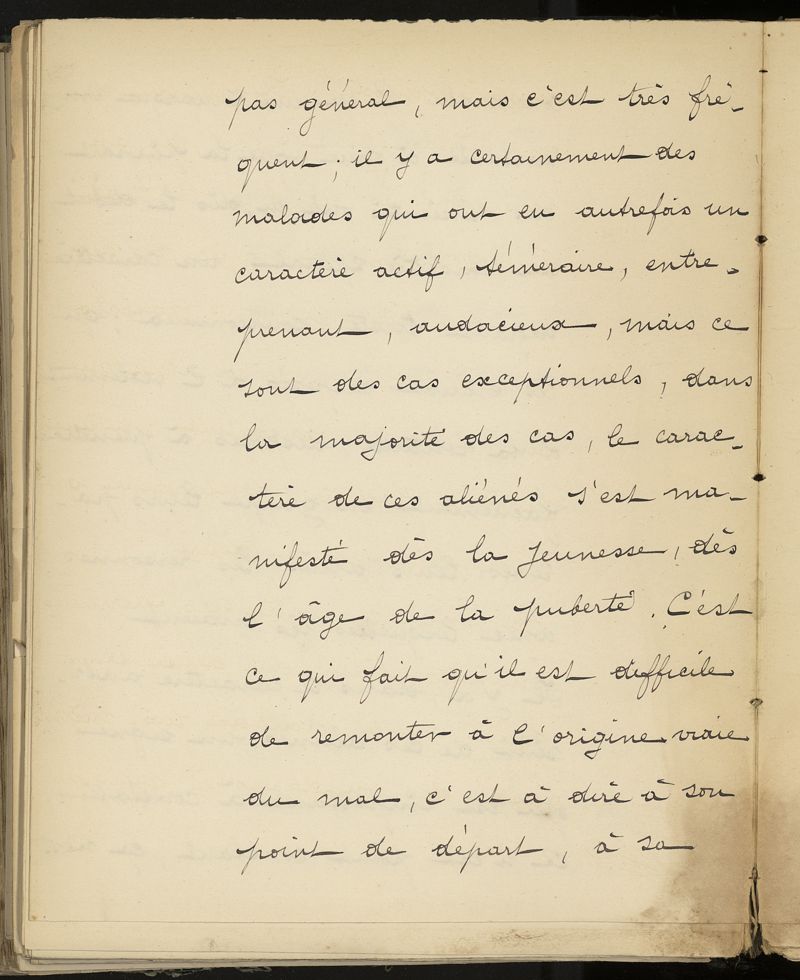 pas général, mais c'est très fré-
quent; il y a certainement des
malades qui ont eu autrefois un
caractère actif, téméraire, entre-
prenant, audacieux, mais ce
sont des cas exceptionnels, dans
la majorité des cas, le carac-
tère de ces aliénés s'est ma-
nifesté dès la jeunesse, dès
l'âge de la puberté. C'est
ce qui fait qu'il est difficile
de remonter à l'origine vraie
du mal, c'est à dire à son
point de départ, à sa